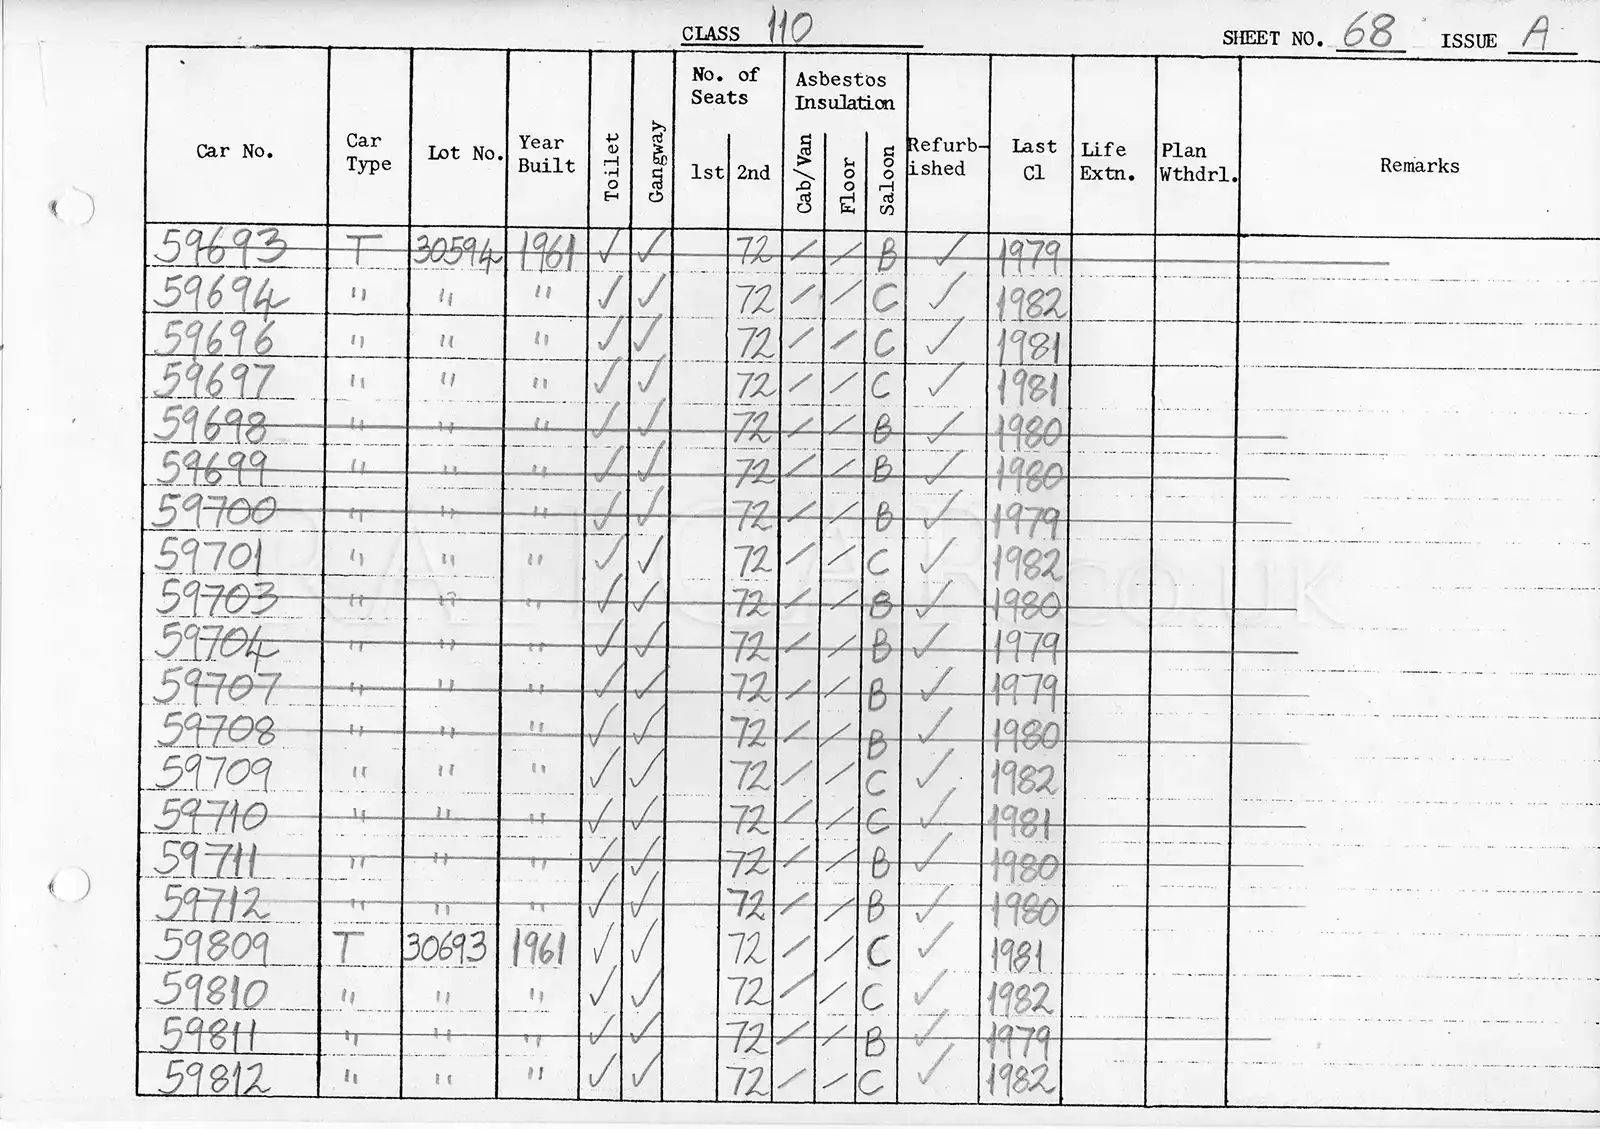 CLASS 110 SHEET NO. 68 ISSUE A
Car No. Car Type Lot No. Year Built Toilet Gangway No. of Seats 1st 2nd Asbestos Insulation Cab/Van Floor Saloon Refurb-ished Last Cl Life Extn. Plan Wthdrl. Remarks
59693 T 30594 1961 ✓ ✓ 72 / / B ✓ 1979
59694 " " " ✓ ✓ 72 / / C ✓ 1982
59696 " " " ✓ ✓ 72 / / C ✓ 1981
59697 " " " ✓ ✓ 72 / / C ✓ 1981
59698 " " " ✓ ✓ 72 / / B ✓ 1980
59699 " " " ✓ ✓ 72 / / B ✓ 1980
59700 " " " ✓ ✓ 72 / / B ✓ 1979
59701 " " " ✓ ✓ 72 / / C ✓ 1982
59703 " " " ✓ ✓ 72 / / B ✓ 1980
59704 " " " ✓ ✓ 72 / / B ✓ 1979
59707 " " " ✓ ✓ 72 / / B ✓ 1979
59708 " " " ✓ ✓ 72 / / B ✓ 1980
59709 " " " ✓ ✓ 72 / / C ✓ 1982
59710 " " " ✓ ✓ 72 / / C ✓ 1981
59711 " " " ✓ ✓ 72 / / B ✓ 1980
59712 " " " ✓ ✓ 72 / / B ✓ 1980
59809 T 30693 1961 ✓ ✓ 72 / / C ✓ 1981
59810 " " " ✓ ✓ 72 / / C ✓ 1982
59811 " " " ✓ ✓ 72 / / B ✓ 1979
59812 " " " ✓ ✓ 72 / / C ✓ 1982